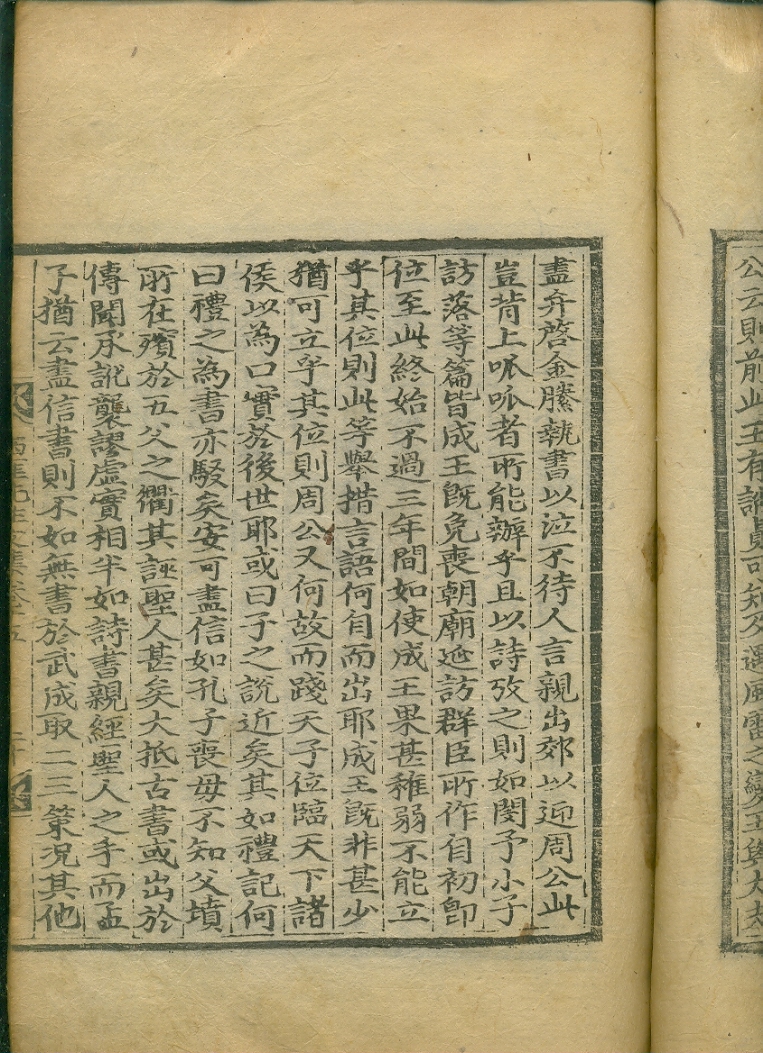 公云則前此王有誚
遇風雷之變王與大夫
盡弁啓金縢執書以泣不待人言親出郊以迎周公此
豈背上呱呱者所能辦乎且以詩攷之則如閔予小子
訪落等篇皆成王旣免喪朝廟延訪群臣所作自初卽
位至此終始不過三年間如使成王果甚稚弱不能立
乎其位則此等擧措言語何自而出耶成王旣非甚少
猶可立乎其位則周公又何故而踐天子位臨天下諸
侯以為口實於後世耶或曰子之說近矣其如禮記何
曰禮之為書亦駁矣安可盡信如孔子喪母不知父墳
所在殯於五父之衢其誣聖人甚矣大抵古書或出於
傳聞承訛襲謬虛實相半如詩書親經聖人之手而孟
子猶云盡信書則不如無書於武成取二三策況其他